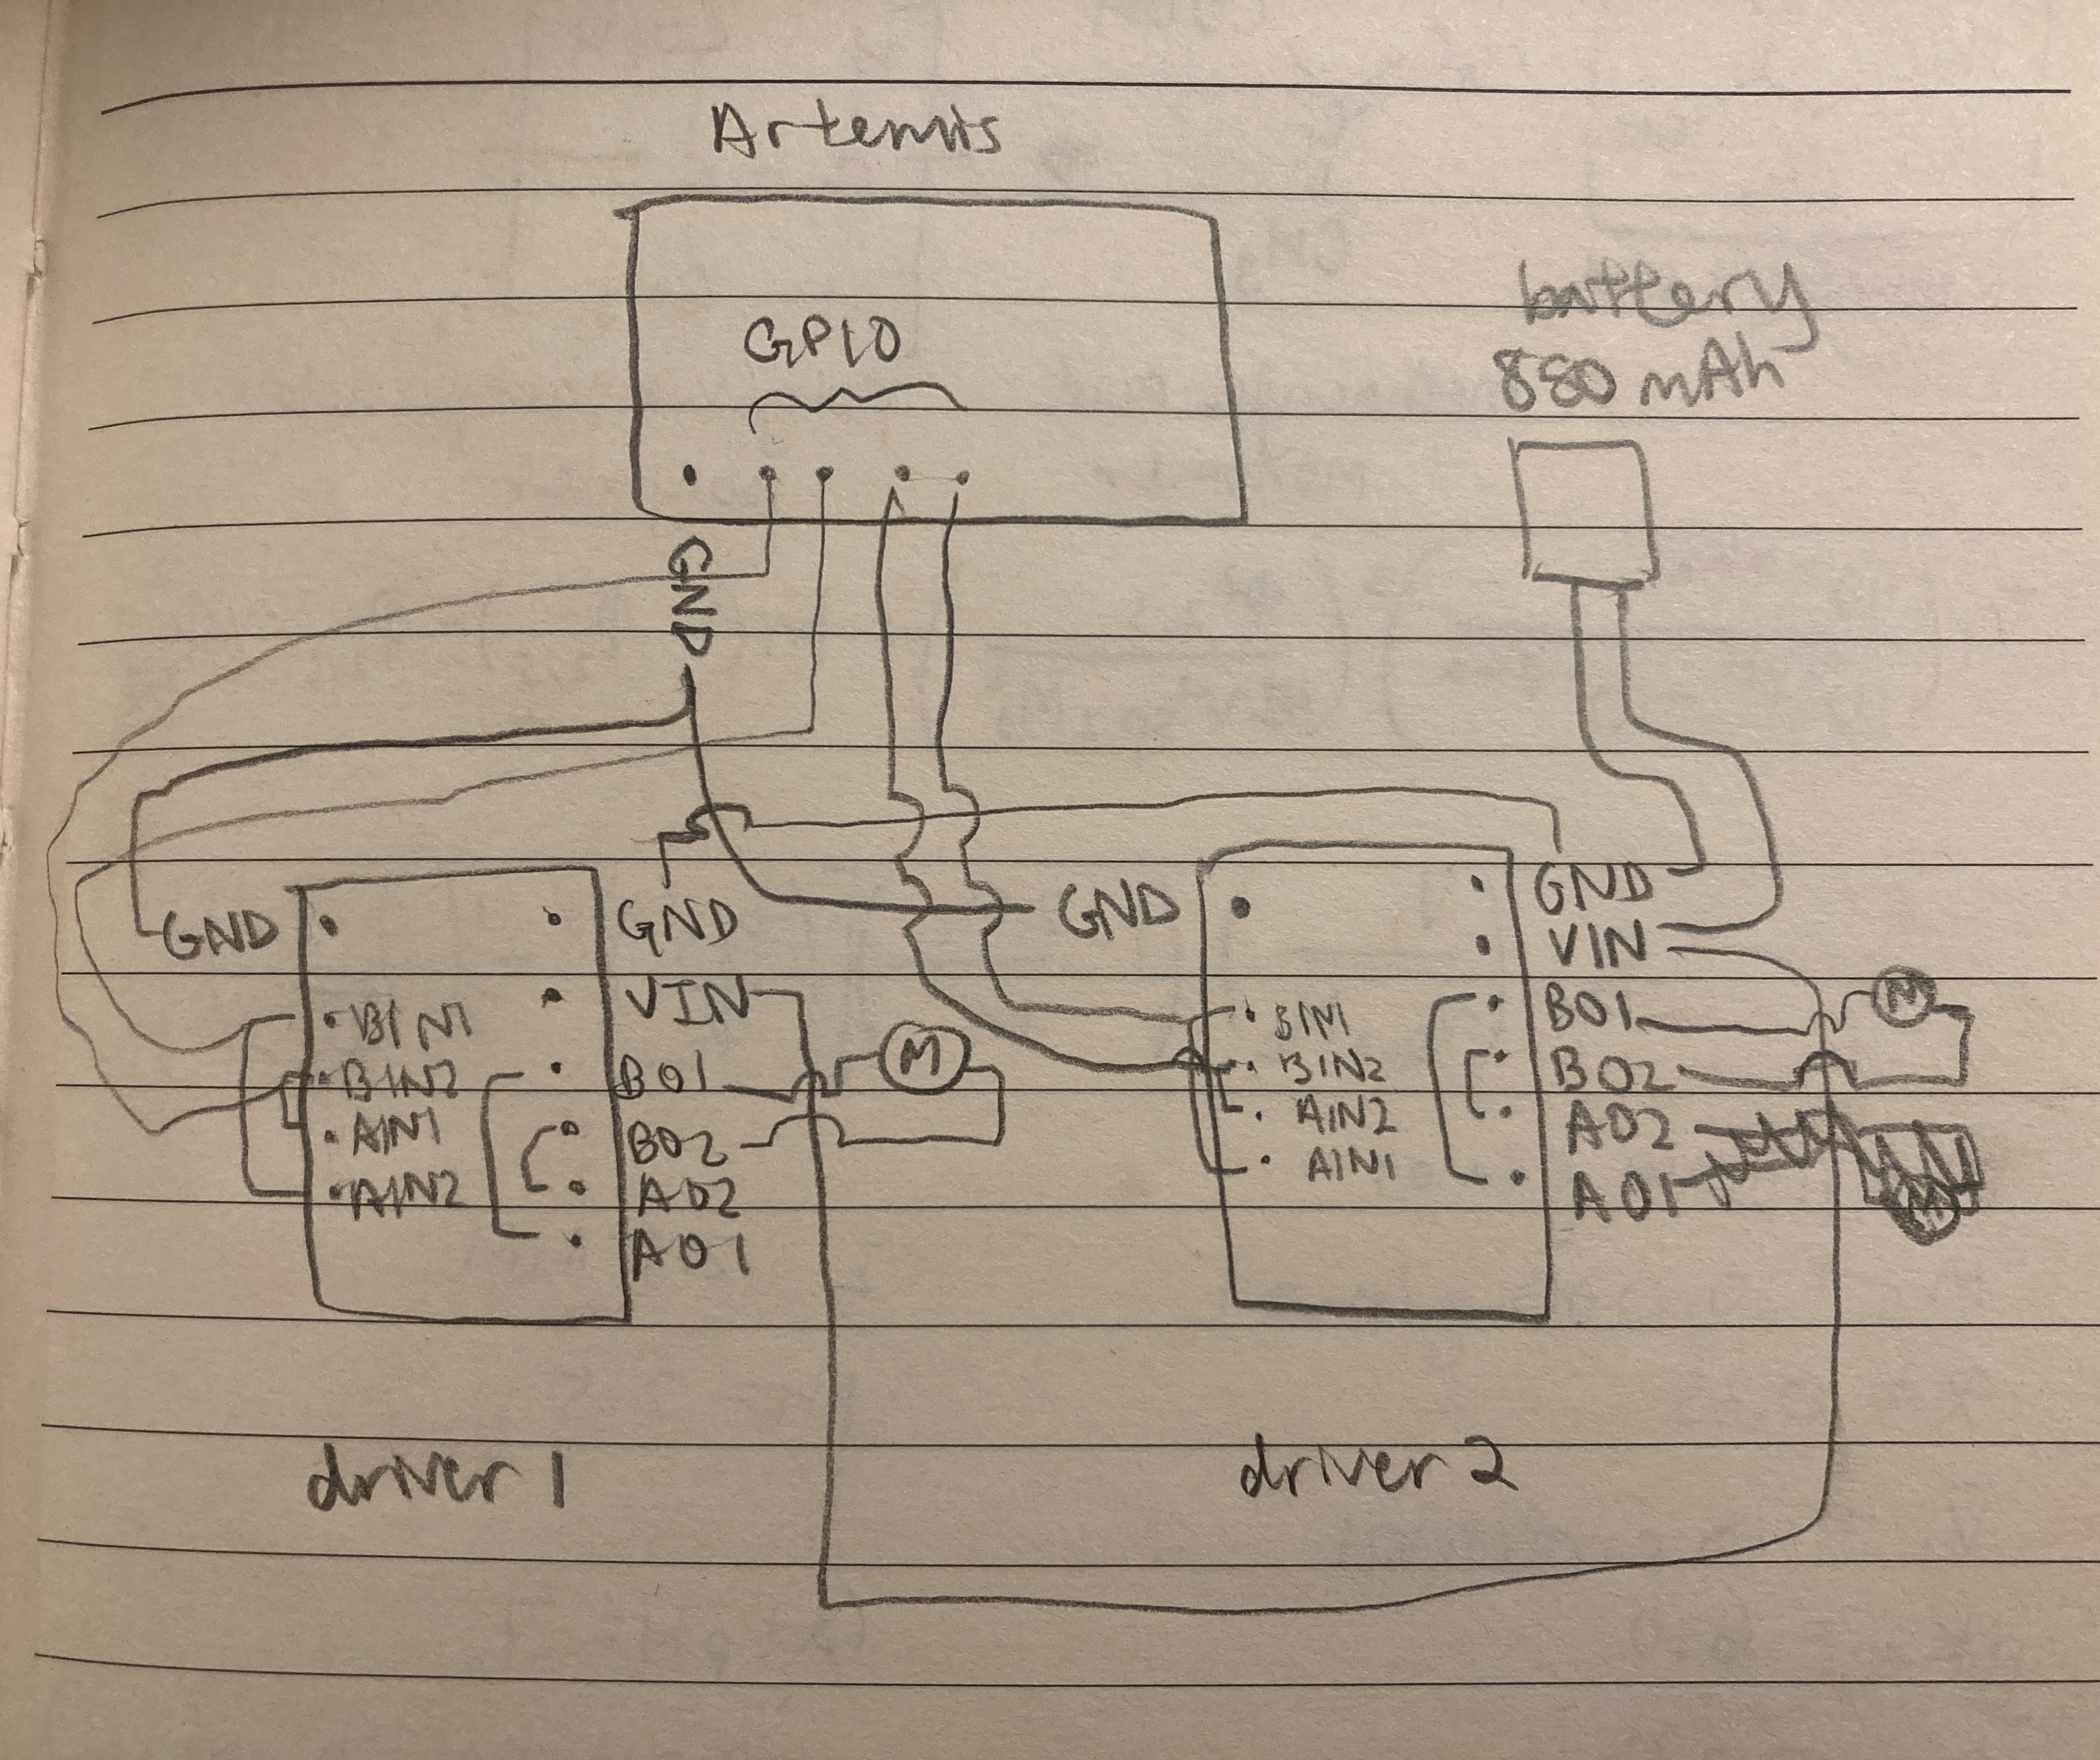 Artemis
GPIO
battery
880 mAh
GND
GND
GND
VIN
BIN1
BIN2
AIN1
AIN2
BO1
M
BO2
AO2
AO1
GND
GND
VIN
BIN1
BIN2
AIN2
AIN1
BO1
M
BO2
AO2
AO1
M
driver 1
driver 2